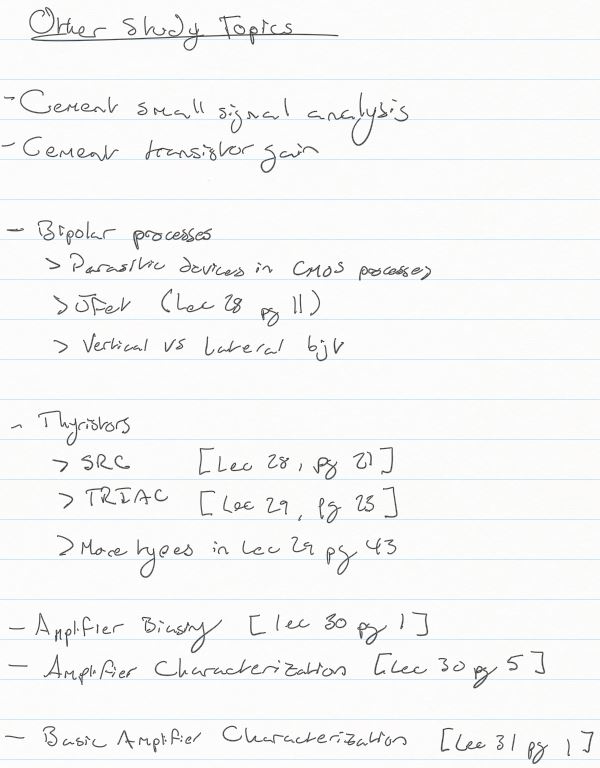 Other Study Topics
- Cement small signal analysis
- Cement transistor gain
- Bipolar processes
> Parasitic devices in CMOS processes
> JFet (Lec 28 pg 11)
> Vertical vs Lateral bjt
- Thyristors
> SRC [Lec 28, pg 21]
> TRIAC [Lec 29, pg 23]
> More types in Lec 29 pg 43
- Amplifier Biasing [lec 30 pg 1]
- Amplifier Characterization [Lec 30 pg 5]
- Basic Amplifier Characterization [Lec 31 pg 1]